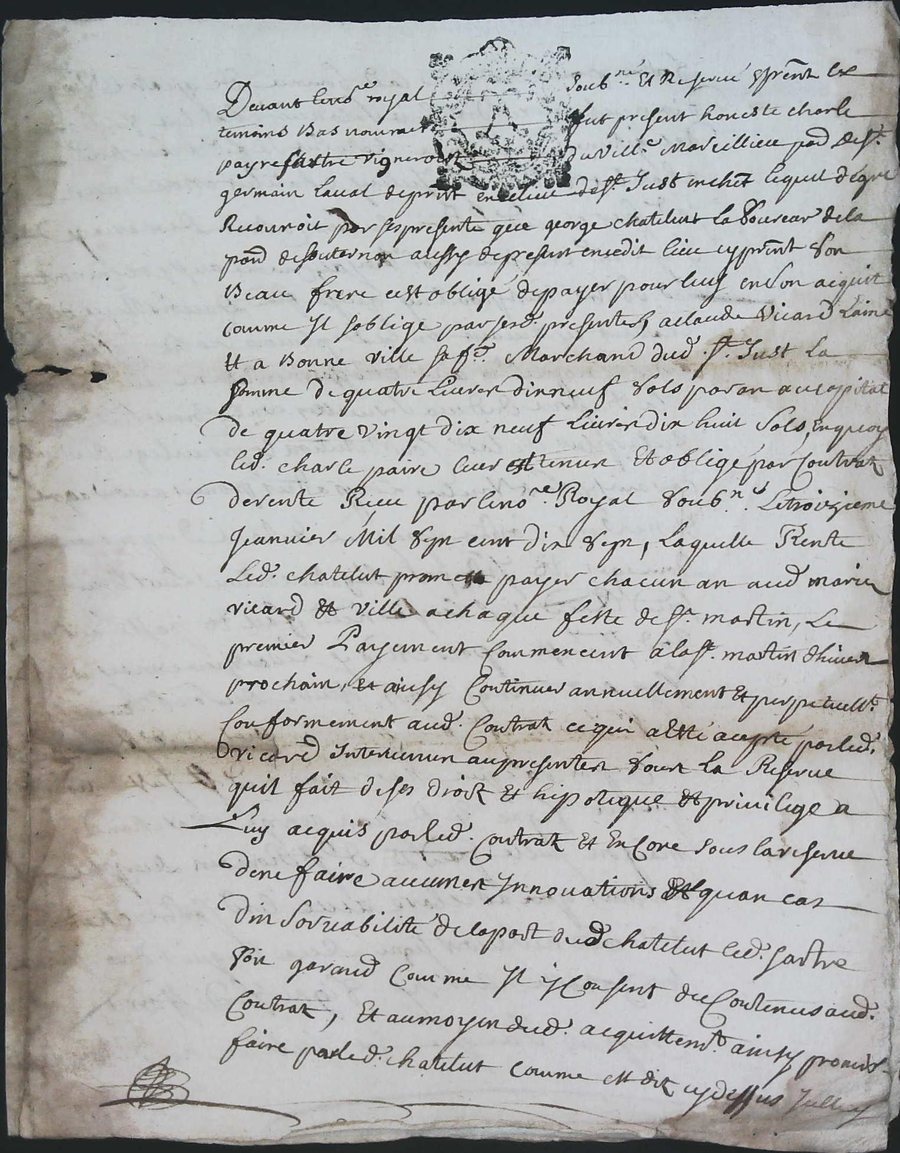 Devant le no.re royal soubs.né Et Reservé sprént Ex
temoins Bas nommés fut present honeste charle
payre Vigneron du Vill.e Marcillieu parr.e de S.t
germain laval de print en ce lieu de S.t Just lequel de gré
Reconnoit par ses presente que george chatelut laboureur de la
parr. de souternon aussy de presant en cedit lieu cy prent son
Beau frere c'est obligé de payer pour luy en son acquit
comme Il s'oblige par ses d. presentes, a claude Vicard Laine
Et a Bonne Ville sa f.e Marchand dud. S.t Just La
somme de quatre Livres dix neuf sols par an au capital
de quatre vingt dix neuf Livres dix huit sols, en quoy
led. charle paire leur est tenu Et obligé par Contrat
de rente Receu par le no.re Royal soubs.né Le troizieme
Jeanvier Mil sept cent dix sept, Laquelle Rente
Led. chatelut promet payer chacun an aud. mariés
vicard & Ville a chaque feste de S.t martin, Le
premier Payement Commencent a la S.t martin d'hiver
prochain, et ainsy Continuer annuellement Et perpetuellt.
Conformement aud. Contrat ce qui a Eté acepté par led.
vicard Intervenu au presentes sous la Reserve
quil fait de ses droit Et hipoteque Et privilege a
Luy acquis par led. Contrat Et Encore sous la reserve
de ne faire aucunes Innovations Et qu'en cas
d'insolvabilité de la part dud. chatelut led. sartre
soit garand Comme Il y Consent du Contenus aud.
Contrat, Et au moyen dud. acquittem.t ainsy promis
faire par led. chatelut comme est dit cy dessus